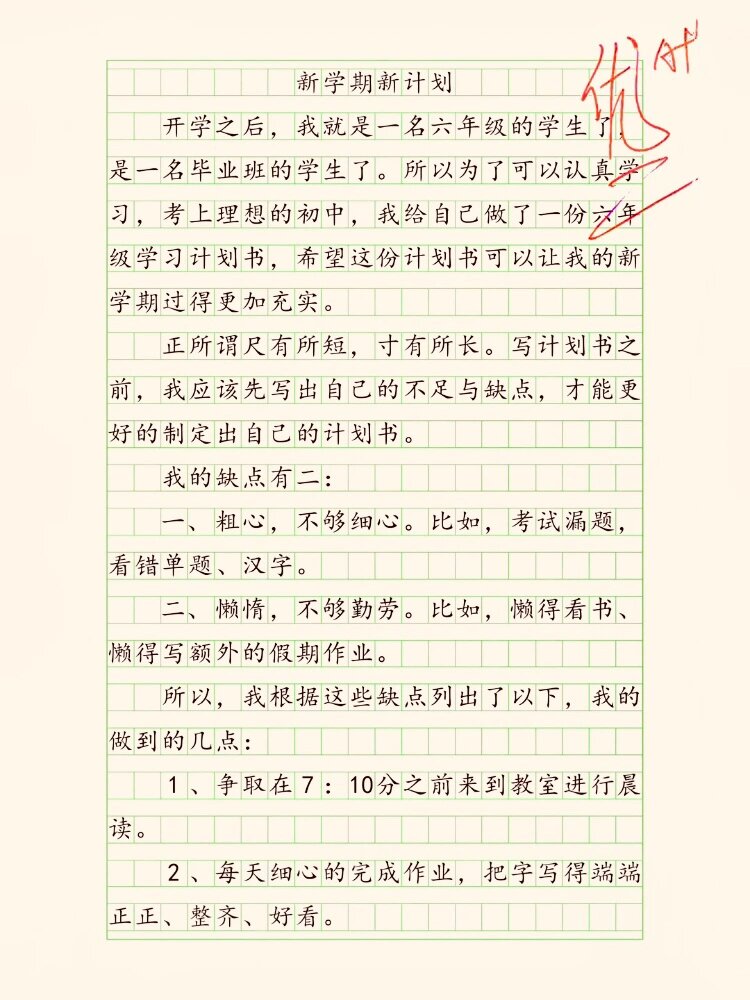 新学期新计划
优 A+
开学之后，我就是一名六年级的学生了，
是一名毕业班的学生了。所以为了可以认真学
习，考上理想的初中，我给自己做了一份六年
级学习计划书，希望这份计划书可以让我的新
学期过得更加充实。
正所谓尺有所短，寸有所长。写计划书之
前，我应该先写出自己的不足与缺点，才能更
好的制定出自己的计划书。
我的缺点有二：
一、粗心，不够细心。比如，考试漏题，
看错单题、汉字。
二、懒惰，不够勤劳。比如，懒得看书、
懒得写额外的假期作业。
所以，我根据这些缺点列出了以下，我的
做到的几点：
1、争取在7：10分之前来到教室进行晨
读。
2、每天细心的完成作业，把字写得端端
正正、整齐、好看。